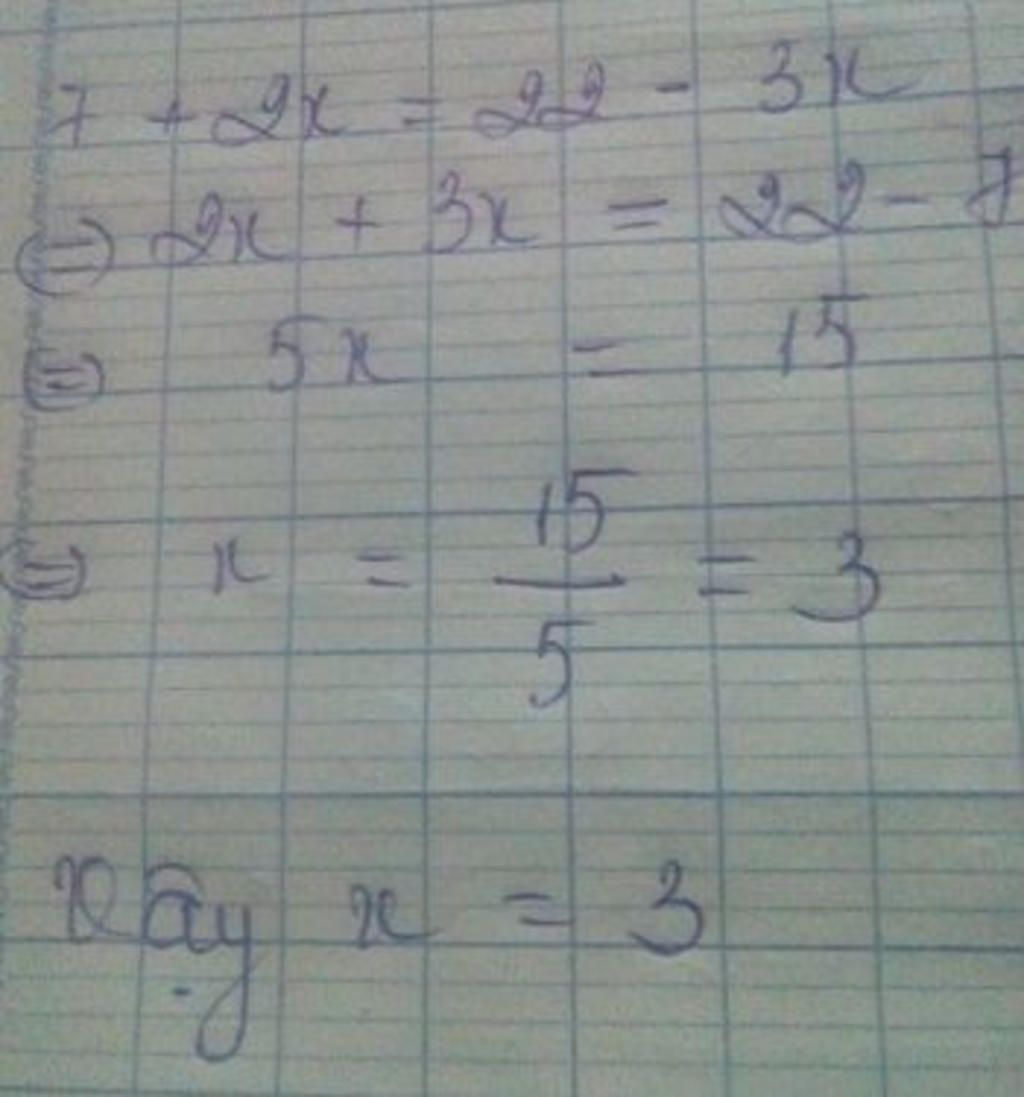 7 + 2x = 22 - 3x
⇔ 2x + 3x = 22 - 7
⇔ 5x = 15
⇔ x = 15/5 = 3
Vậy x = 3